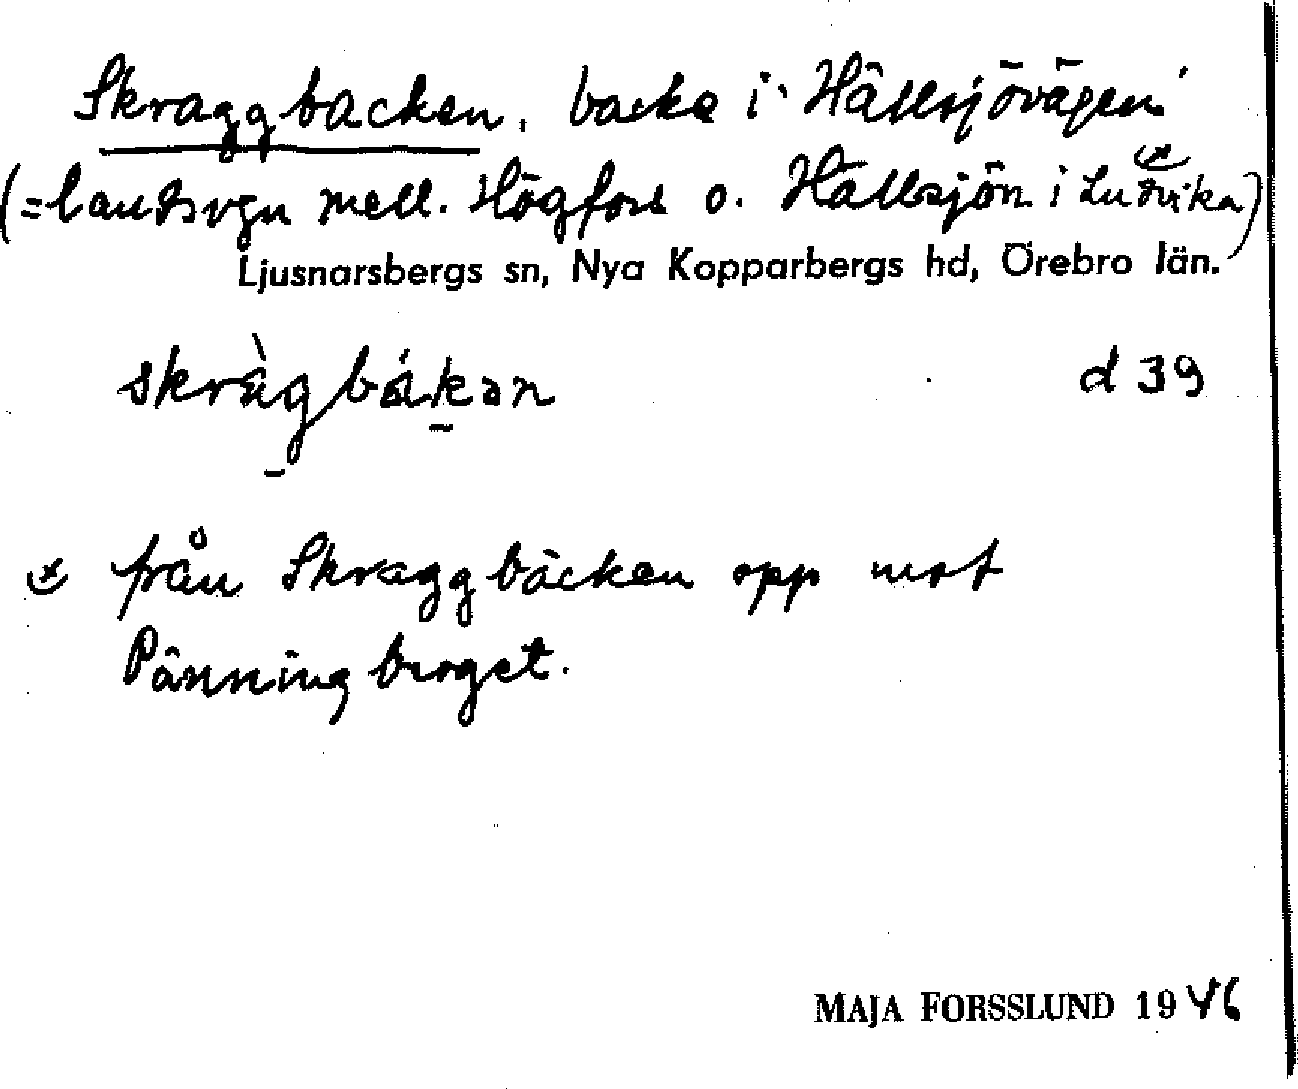 Skraggbacken, backe i 'Hällsjövägen'
(= landsvgn mell. Högfors o. Hällsjön i Ludvika)
Ljusnarsbergs sn, Nya Kopparbergs hd, Örebro län.
skràgbákan d 39
från Skraggbäcken opp mot
Pänningberget.
MAJA FORSSLUND 1946